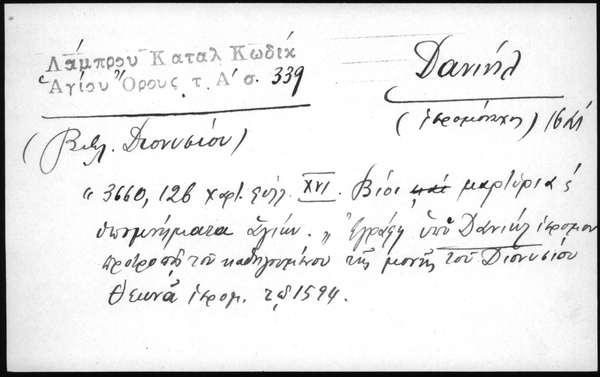 Λάμπρου Καταλ Κωδίκ
Ἁγίου Ὄρους τ. Α' σ. 339
Δανιήλ
(ἱερομόναχος) 16
(Βιβλ. Διονυσίου)
" 3660, 126 χαρτ. XVI. Βίοι καὶ μαρτύρια ἢ
ὑπομνήματα ἁγίων. „ Ἐγράφη ὑπὸ Δανιὴλ ἱερομον
προτροπῇ τοῦ καθηγουμένου τῆς μονῆς τοῦ Διονυσίου
Θεωνᾶ ἱερομ. τῷ 1594.